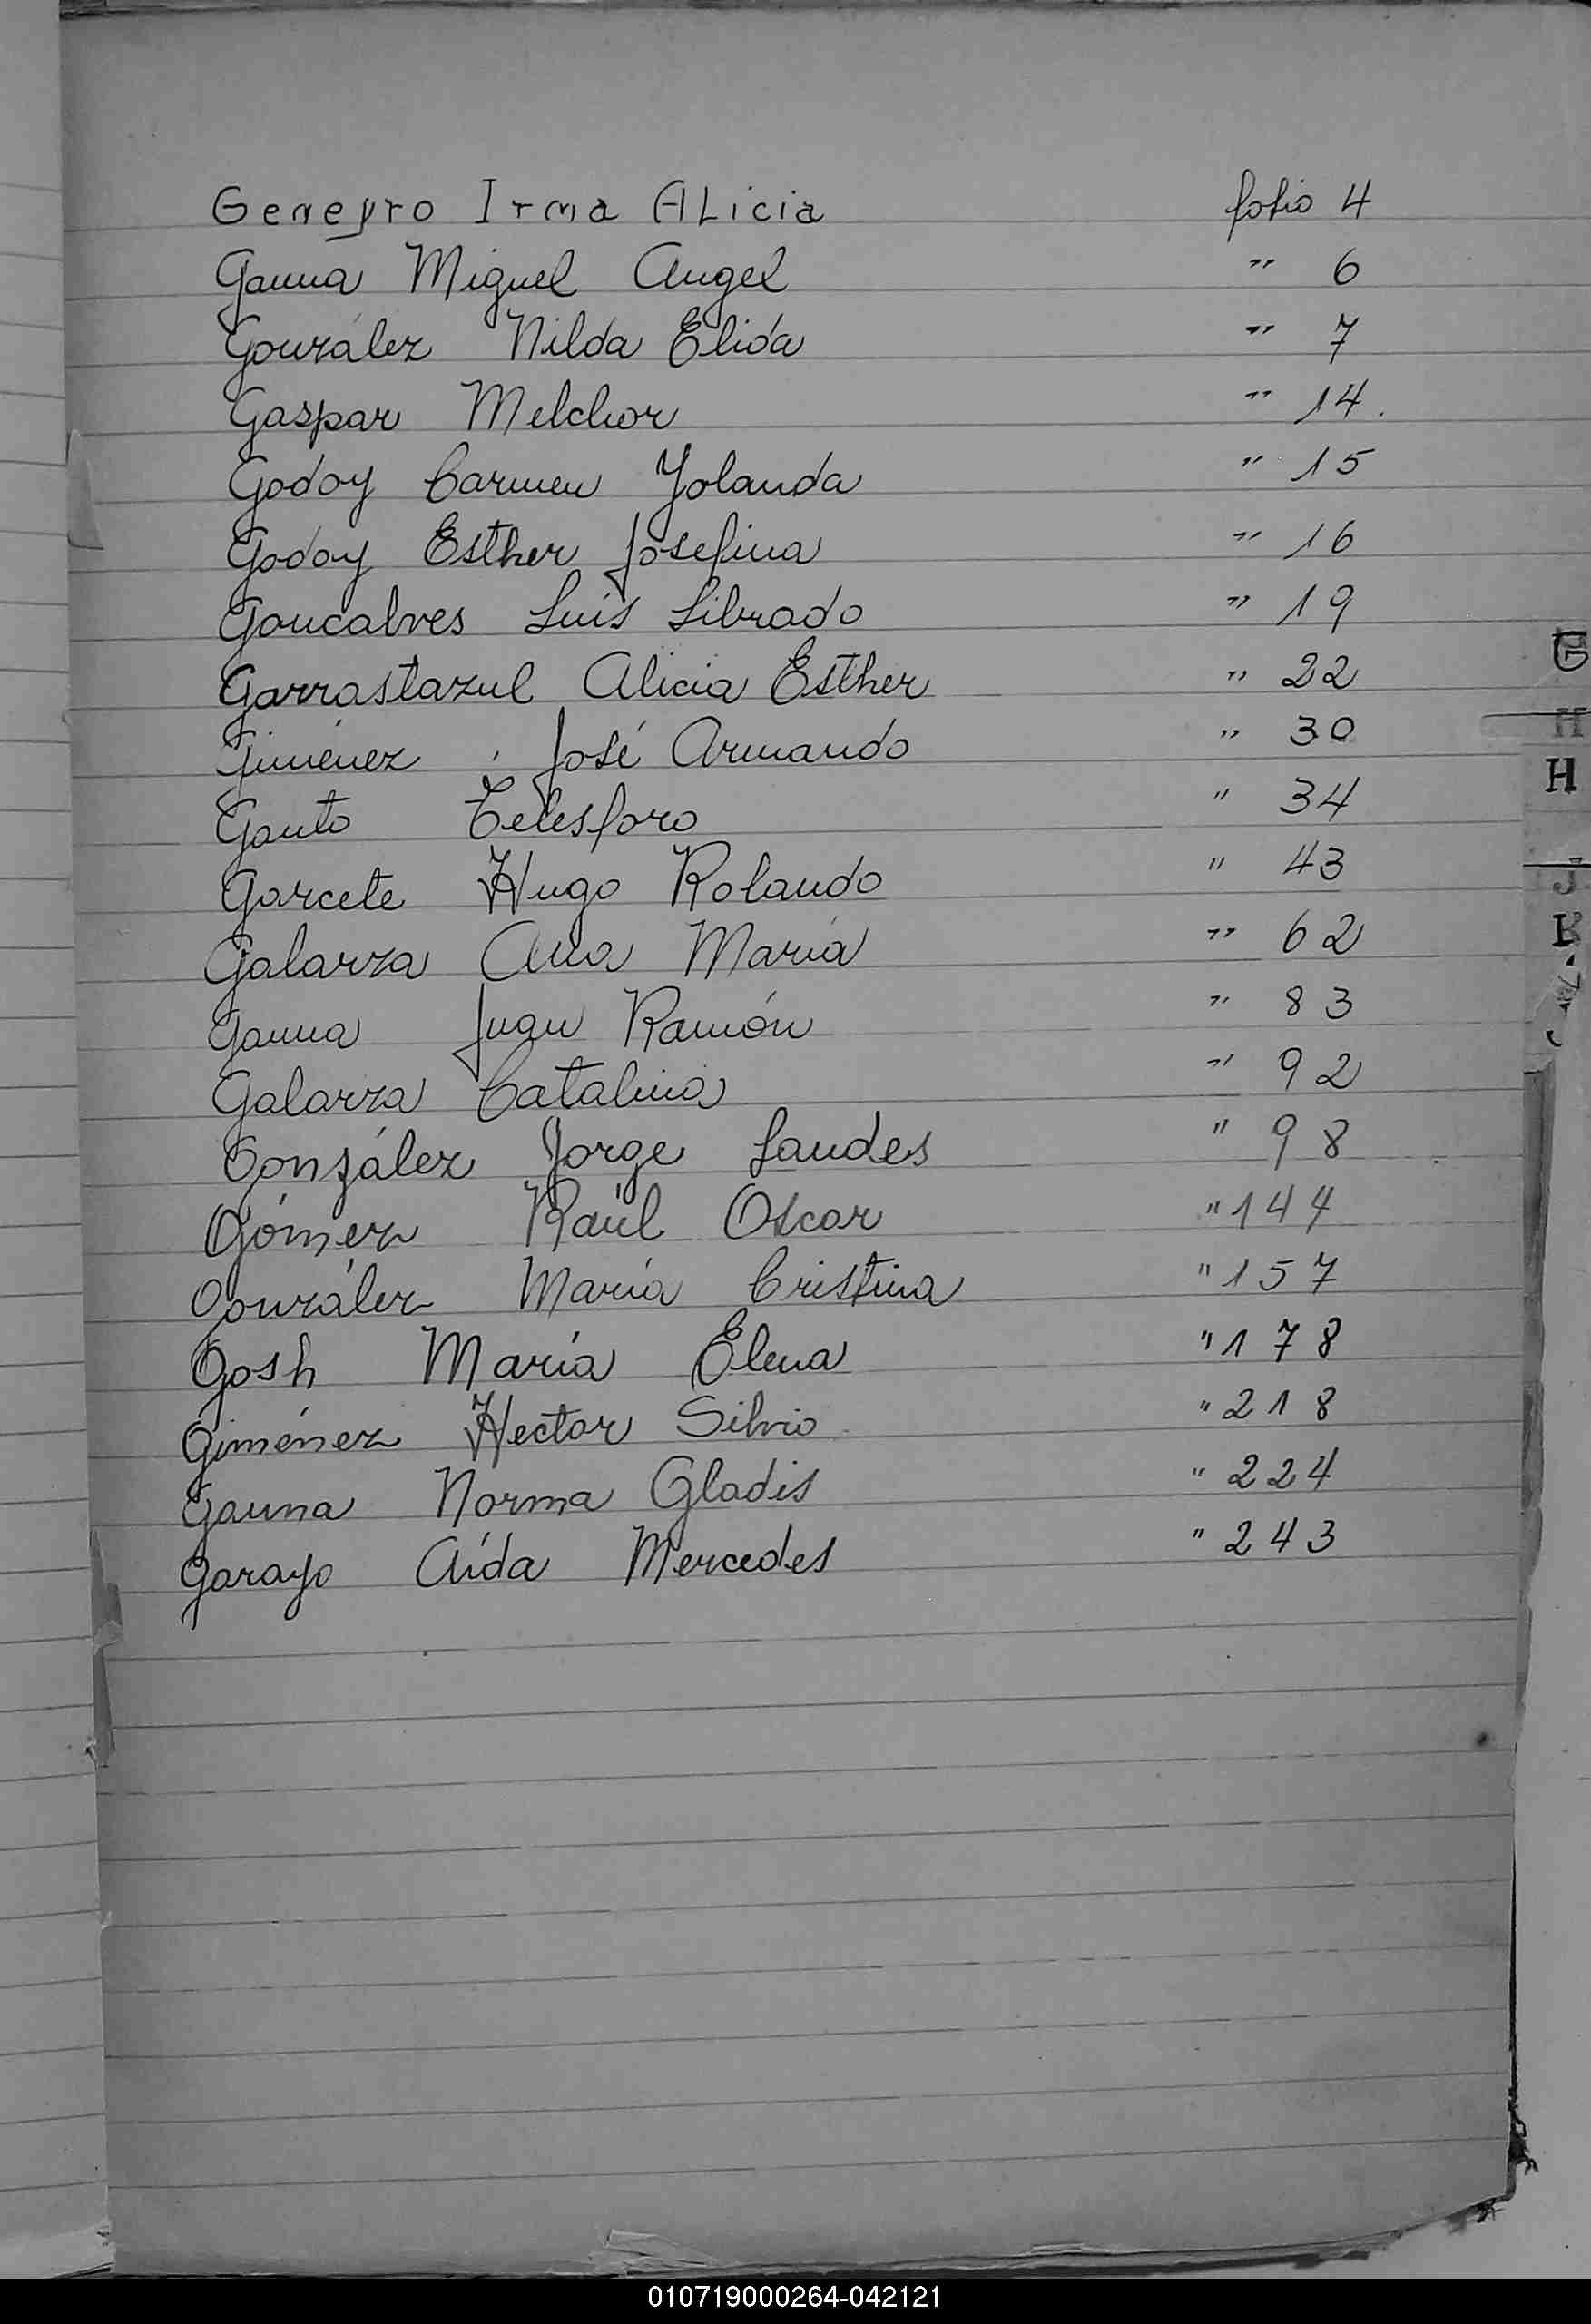 Geneyro Irma ALicia folio 4
Gauna Miguel Angel " 6
González Nilda Elida " 7
Gaspar Melchor " 14.
Godoy Carmen Yolanda " 15
Godoy Esther Josefina " 16
Goncalves Luis Librado " 19
Garrastazul Alicia Esther " 22
Jiménez José Armando " 30
Gauto Telesforo " 34
Garcete Hugo Rolando " 43
Galarza Ana María " 62
Gauna Juan Ramón " 83
Galarza Catalina " 92
González Jorge Landes " 98
Gómez Raúl Oscar " 144
González María Cristina " 157
Gosh María Elena " 178
Giménez Hector Silvio " 218
Gauna Norma Gladis " 224
Garayo Aída Mercedes " 243
G
H
H
J
010719000264-042121